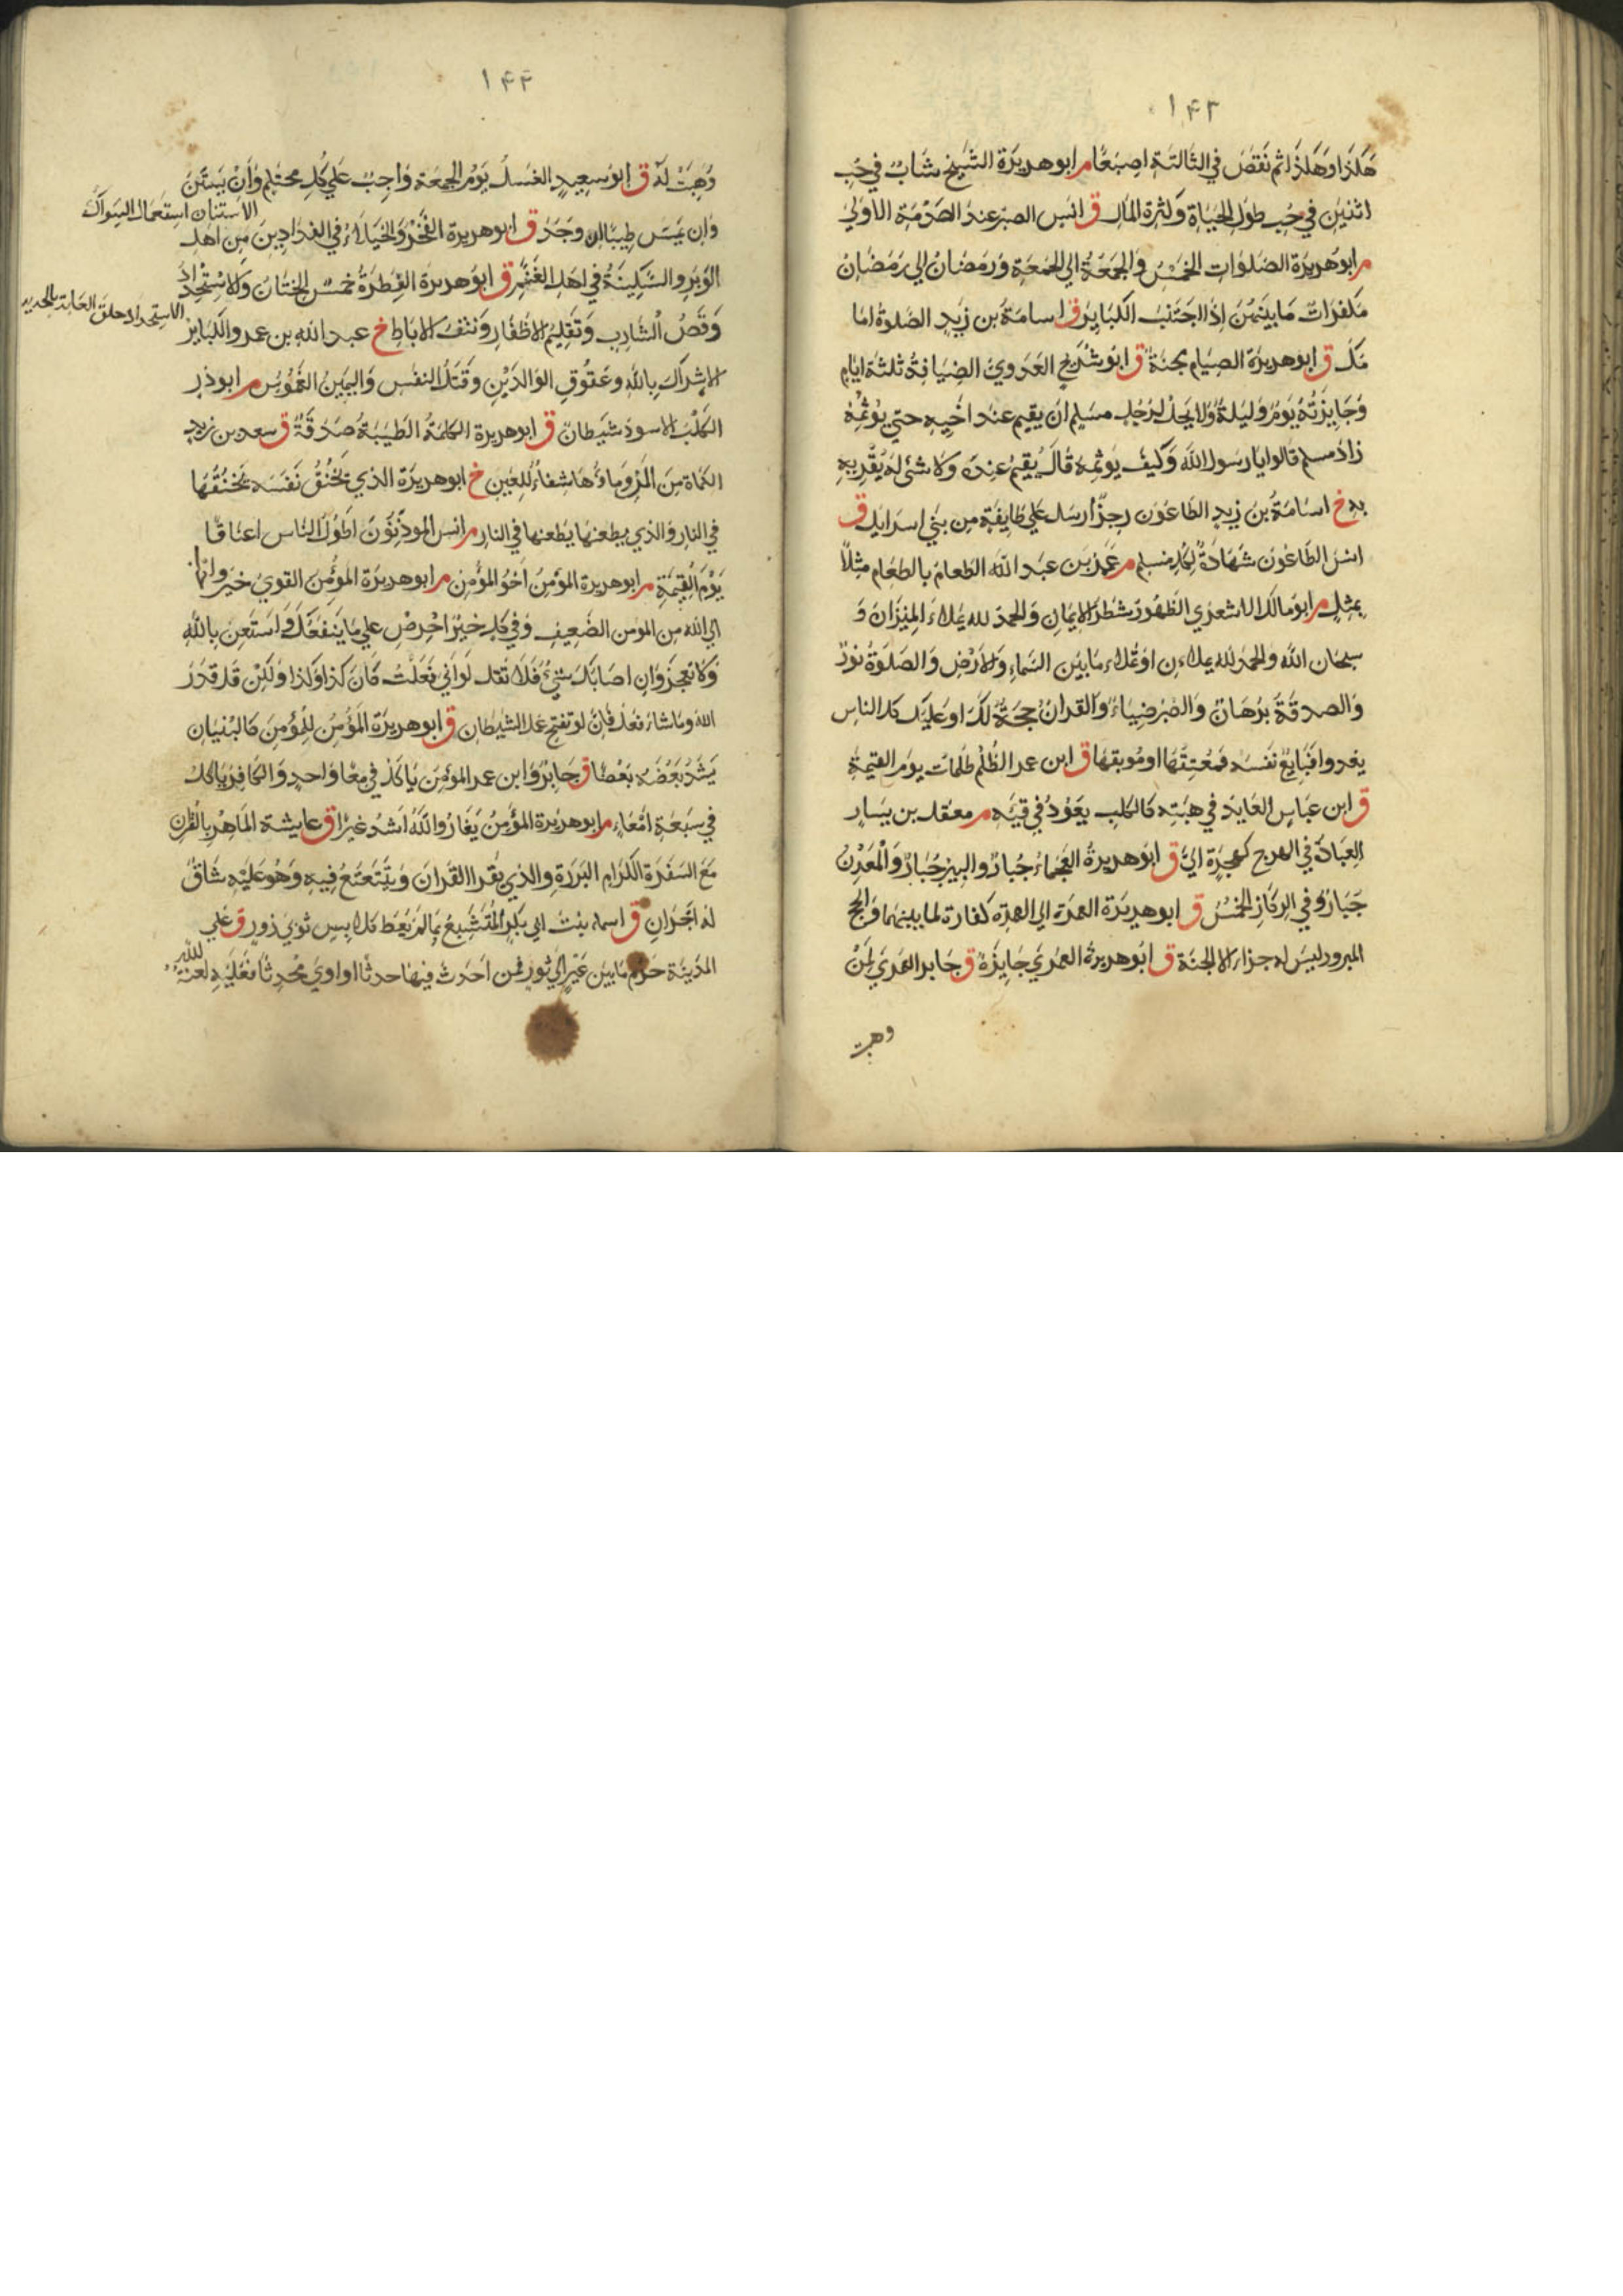 ١٤٣
هكذا وهكذا ثم نقص في الثالثة اصبعا م ابوهريرة الشيخ شاب في حب
اثنين في حب طول الحياة وكثرة المال ق انس الصبر عند الصدمة الاولى
م ابوهريرة الصلوات الخمس والجمعة الي الجمعة ورمضان الي رمضان
مكفرات ما بينهن اذا اجتنب الكبائر ق اسامة بن زيد الصلوة اما
مك ق ابوهريرة الصيام جنة ق ابو شريح العدوي الضيافة ثلثة ايام
وجايزته يوم وليلة ولا يحل لرجل مسلم ان يقيم عند اخيه حتى يؤثمه
زاد مسلم قالوا يا رسول الله وكيف يوثمه قال يقيم عنده ولا شئ له يقريه
به خ اسامة بن زيد الطاعون رجز ارسل علي طايفة من بني اسرايل ق
انس الطاعون شهادة لكل مسلم م معمر بن عبد الله الطعام بالطعام مثلا
بمثل م ابو مالك الاشعري الطهور شطر الايمان والحمد لله يملاء الميزان و
سبحان الله والحمد لله يملاءن او يملاء ما بين السماء والارض والصلوة نور
والصدقة برهان والصبر ضياء والقران حجة لك او عليك كل الناس
يغدوا فبايع نفسه فمعتقها او موبقها ق ابن عمر الظلم ظلمات يوم القيمة
ق ابن عباس العايد في هبته كالكلب يعود في قيئه م معقل بن يسار
العبادة في الهرج كهجرة الي ق ابوهريرة العجماء جبار والبير جبار والمعدن
جبار وفي الركاز الخمس ق ابوهريرة العمرة الي العمرة كفارة لما بينهما والحج
المبرور ليس له جزاء الا الجنة ق ابوهريرة العمري جايزة ق جابر العمري لمن
وهبت
١٤٤
وهبت له ق ابو سعيد الغسل يوم الجمعة واجب علي كل محتلم وان يستن
الاستنان استعمال السواك
وان يمس طيبا ان وجد ق ابوهريرة الفخر والخيلاء في الفدادين من اهل
الوبر والسكينة في اهل الغنم ق ابوهريرة الفطرة خمس الختان والاستحداد
الاستحداد حلق العانة بالحديد
وقص الشارب وتقليم الاظفار ونتف الاباط خ عبد الله بن عمرو الكباير
الاشراك بالله وعقوق الوالدين وقتل النفس واليمين الغموس م ابوذر
الكلب الاسود شيطان ق ابوهريرة الكلمة الطيبة صدقة ق سعد بن زيد
الكماة من المن وماؤها شفاء للعين خ ابوهريرة الذي يخنق نفسه يخنقها
في النار والذي يطعنها يطعنها في النار م انس الموذنون اطول الناس اعناقا
يوم القيمة م ابوهريرة المؤمن اخو المؤمن م ابوهريرة المؤمن القوي خير و
الي الله من المومن الضعيف وفي كل خير احرص علي ما ينفعك واستعن بالله
ولا تعجز وان اصابك شئ فلا تقل لو اني فعلت كان كذا وكذا ولكن قل قدر
الله وما شاء فعل فان لو تفتح عمل الشيطان ق ابوهريرة المؤمن للمؤمن كالبنيان
يشد بعضه بعضا ق جابر وابن عمر المؤمن ياكل في معا واحد والكافر ياكل
في سبعة امعاء م ابوهريرة المؤمن يغار والله اشد غيرا ق عايشة الماهر بالقران
مع السفرة الكرام البررة والذي يقرا القران ويتتعتع فيه وهو عليه شاق
له اجران ق اسماء بنت ابي بكر المتشبع بما لم يعط كلابس ثوبي زور ق علي
المدينة حرم ما بين عير الي ثور فمن احدث فيها حدثا او اوي محدثا فعليه لعنة الله